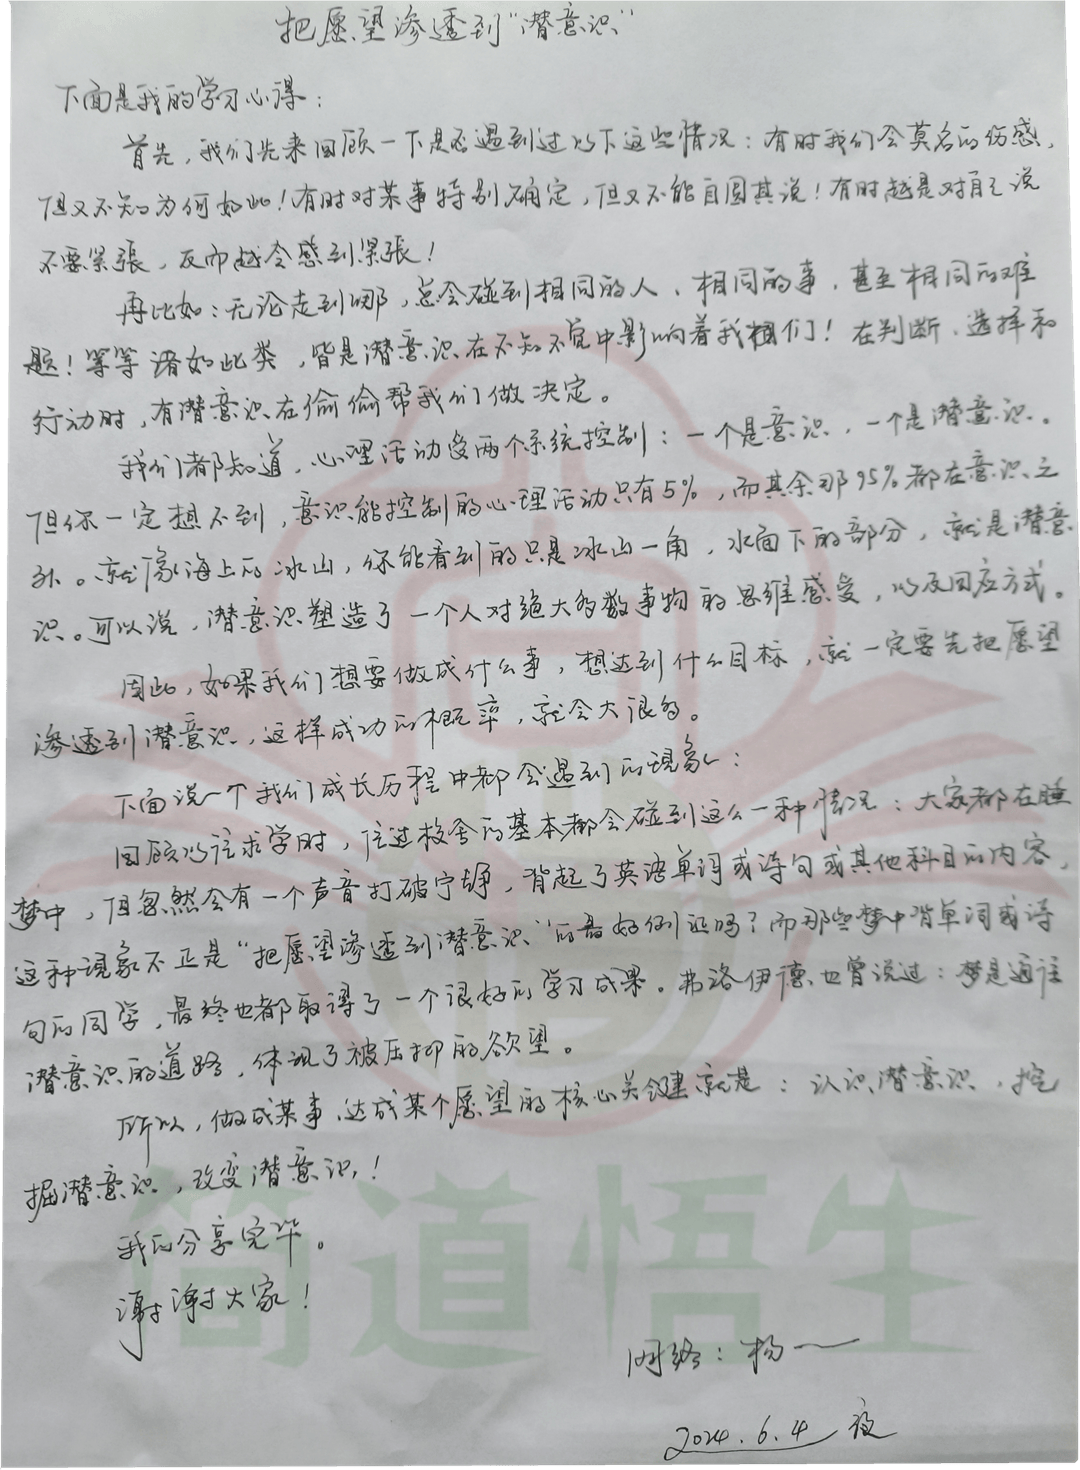 把愿望渗透到“潜意识”
下面是我的学习心得：
首先，我们先来回顾一下是否遇到过以下这些情况：有时我们会莫名的伤感，
但又不知为何如此！有时对某事特别确定，但又不能自圆其说！有时越是对自己说
不要紧張，反而越会感到紧張！
再比如：无论走到哪，总会碰到相同的人、相同的事，甚至相同的难
题！等等诸如此类，皆是潜意识在不知不觉中影响着我们！在判断、选择和
行动时，有潜意识在偷偷帮我们做决定。
我们都知道，心理活动受两个系统控制：一个是意识，一个是潜意识。
但你一定想不到，意识能控制的心理活动只有5%，而其余那95%都在意识之
外。就像海上的冰山，你能看到的只是冰山一角，水面下的部分，就是潜意
识。可以说，潜意识塑造了一个人对绝大多数事物的思维感受，以及回应方式。
因此，如果我们想要做成什么事，想达到什么目标，就一定要先把愿望
渗透到潜意识，这样成功的概率，就会大很多。
下面说一个我们成长历程中都会遇到的現象：
回顾以往求学时，住过校舍的基本都会碰到这么一种情况：大家都在睡
梦中，但忽然会有一个声音打破宁静，背起了英语单词或诗句或其他科目的内容，
这种現象不正是“把愿望渗透到潜意识”的最好例证吗？而那些梦中背单词或诗
句的同学，最终也都取得了一个很好的学习成果。弗洛伊德也曾说过：梦是通往
潜意识的道路，体现了被压抑的欲望。
所以，做成某事、达成某个愿望的核心关键就是：认识潜意识，挖
掘潜意识，改变潜意识！
我的分享完毕。
谢谢大家！
网络：杨一
2024.6.4 夜
简道悟生